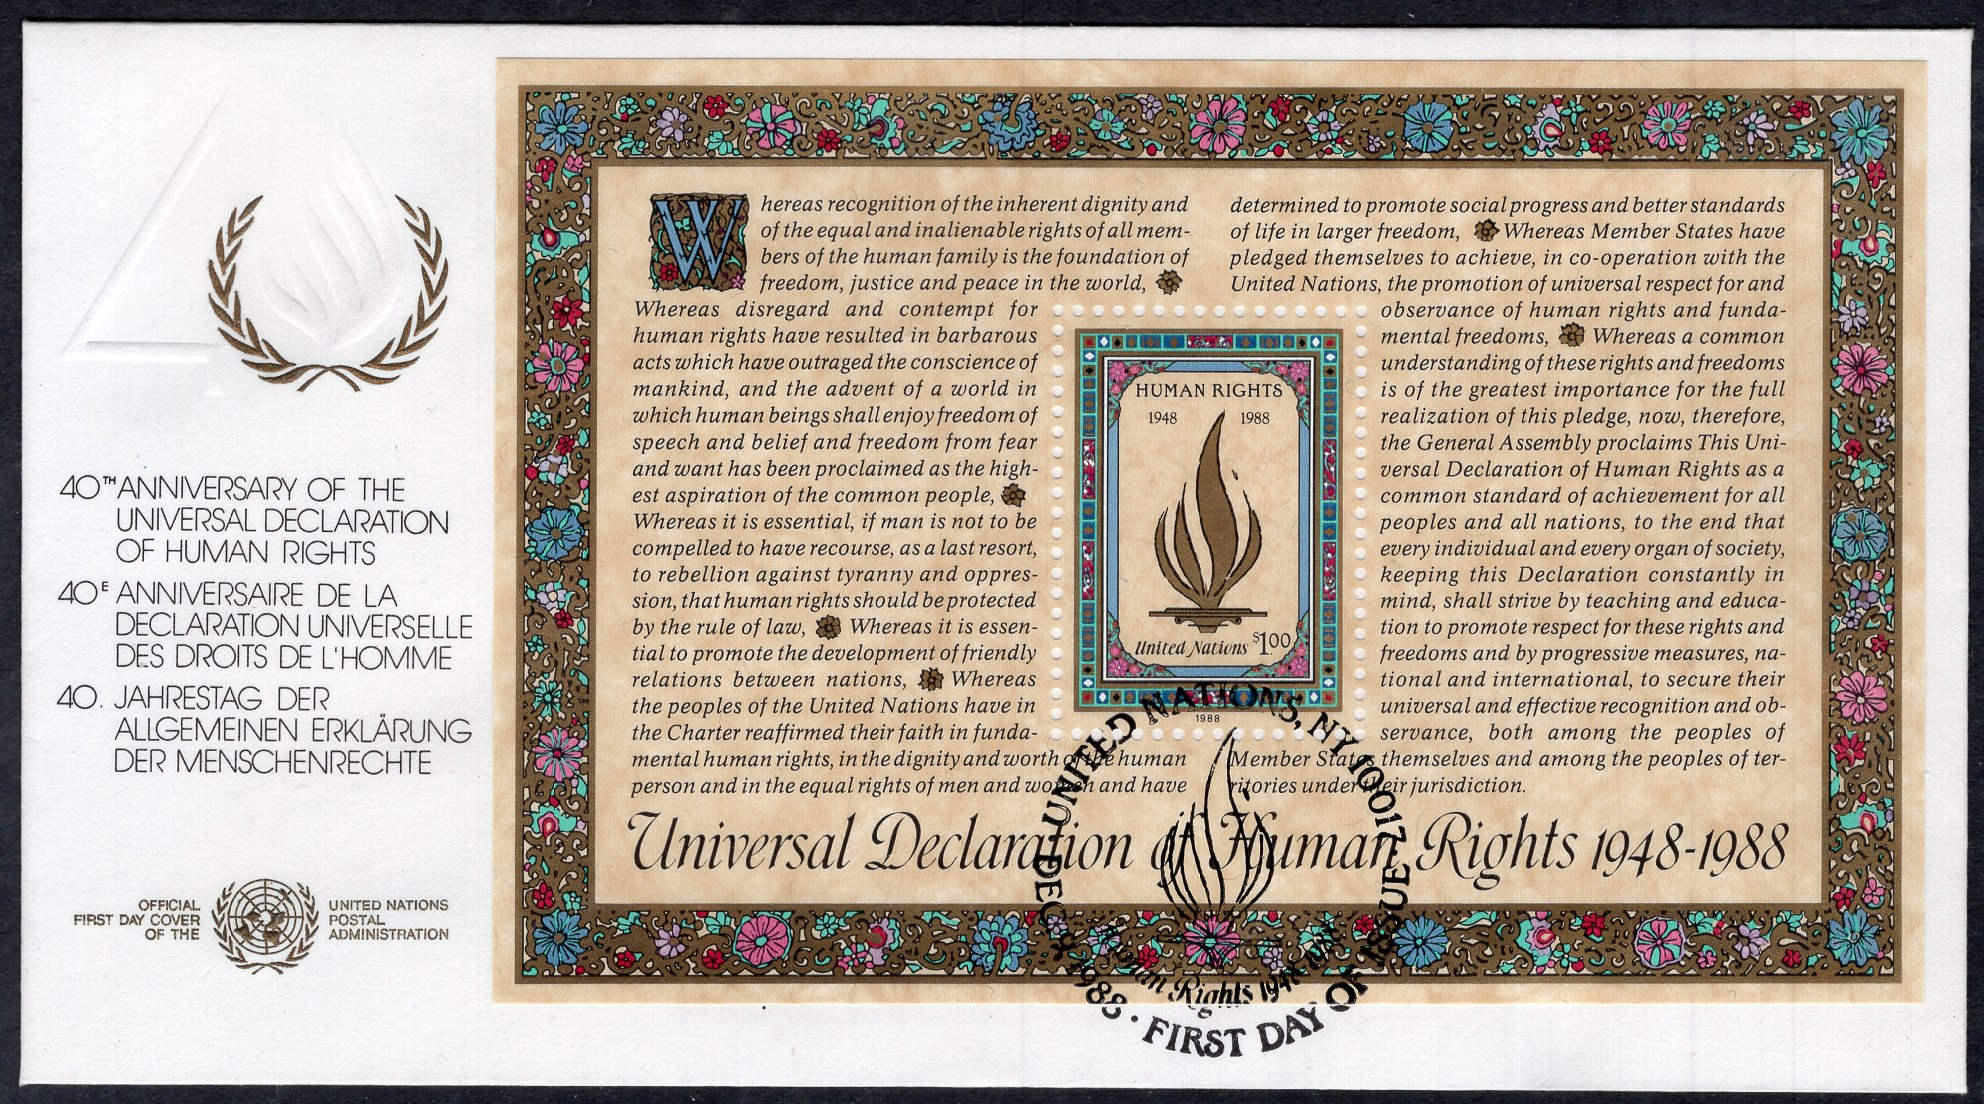 40TH ANNIVERSARY OF THE
UNIVERSAL DECLARATION
OF HUMAN RIGHTS
40E ANNIVERSAIRE DE LA
DECLARATION UNIVERSELLE
DES DROITS DE L'HOMME
40. JAHRESTAG DER
ALLGEMEINEN ERKLÄRUNG
DER MENSCHENRECHTE
OFFICIAL
FIRST DAY COVER
OF THE
UNITED NATIONS
POSTAL
ADMINISTRATION
Whereas recognition of the inherent dignity and
of the equal and inalienable rights of all mem-
bers of the human family is the foundation of
freedom, justice and peace in the world,
Whereas disregard and contempt for
human rights have resulted in barbarous
acts which have outraged the conscience of
mankind, and the advent of a world in
which human beings shall enjoy freedom of
speech and belief and freedom from fear
and want has been proclaimed as the high-
est aspiration of the common people,
Whereas it is essential, if man is not to be
compelled to have recourse, as a last resort,
to rebellion against tyranny and oppres-
sion, that human rights should be protected
by the rule of law, Whereas it is essen-
tial to promote the development of friendly
relations between nations, Whereas
the peoples of the United Nations have in
the Charter reaffirmed their faith in funda-
mental human rights, in the dignity and worth of the human
person and in the equal rights of men and women and have
determined to promote social progress and better standards
of life in larger freedom, Whereas Member States have
pledged themselves to achieve, in co-operation with the
United Nations, the promotion of universal respect for and
observance of human rights and funda-
mental freedoms, Whereas a common
understanding of these rights and freedoms
is of the greatest importance for the full
realization of this pledge, now, therefore,
the General Assembly proclaims This Uni-
versal Declaration of Human Rights as a
common standard of achievement for all
peoples and all nations, to the end that
every individual and every organ of society,
keeping this Declaration constantly in
mind, shall strive by teaching and educa-
tion to promote respect for these rights and
freedoms and by progressive measures, na-
tional and international, to secure their
universal and effective recognition and ob-
servance, both among the peoples of
Member States themselves and among the peoples of ter-
ritories under their jurisdiction.
HUMAN RIGHTS
1948 1988
United Nations $1.00
1988
Universal Declaration of Human Rights 1948-1988
UNITED NATIONS, NY 10017
FIRST DAY OF ISSUE
Human Rights 1948